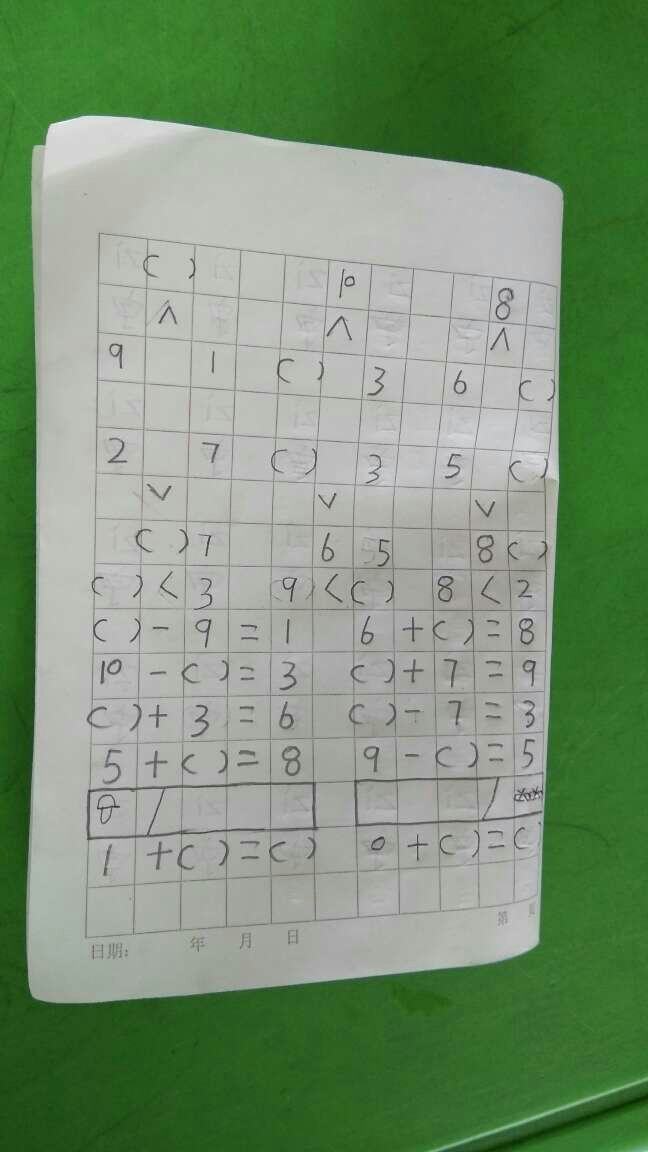 ( ) 10 8
∧ ∧ ∧
9 1 ( ) 3 6 ( )
2 7 ( ) 3 5 ( )
∨ ∨ ∨
( ) 7 6 5 8 ( )
( ) < 3 9 < ( ) 8 < 2
( ) - 9 = 1 6 + ( ) = 8
10 - ( ) = 3 ( ) + 7 = 9
( ) + 3 = 6 ( ) - 7 = 3
5 + ( ) = 8 9 - ( ) = 5
1 + ( ) = ( ) 0 + ( ) = ( )
日期: 年 月 日 第 页